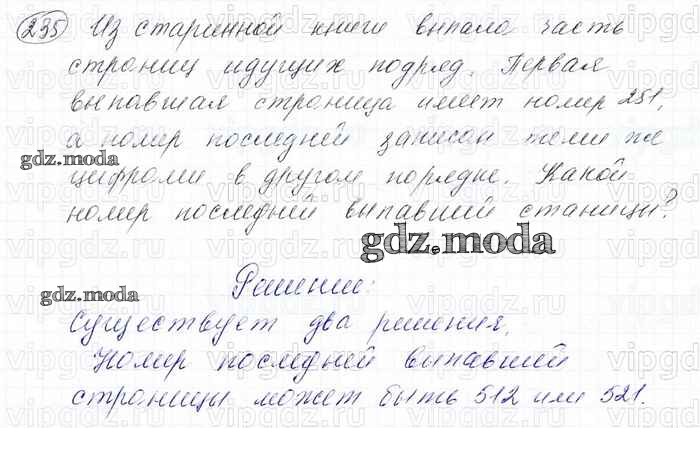 235 Из старинной книги выпало часть
страниц идущих подряд. Первая
выпавшая страница имеет номер 251,
а номер последней записан теми же
gdz.moda
цифрами в другом порядке. Какой
номер последней выпавшей станицы?
gdz.moda
Решение:
gdz.moda
Существует два решения.
Номер последней выпавшей
страницы может быть 512 или 521.